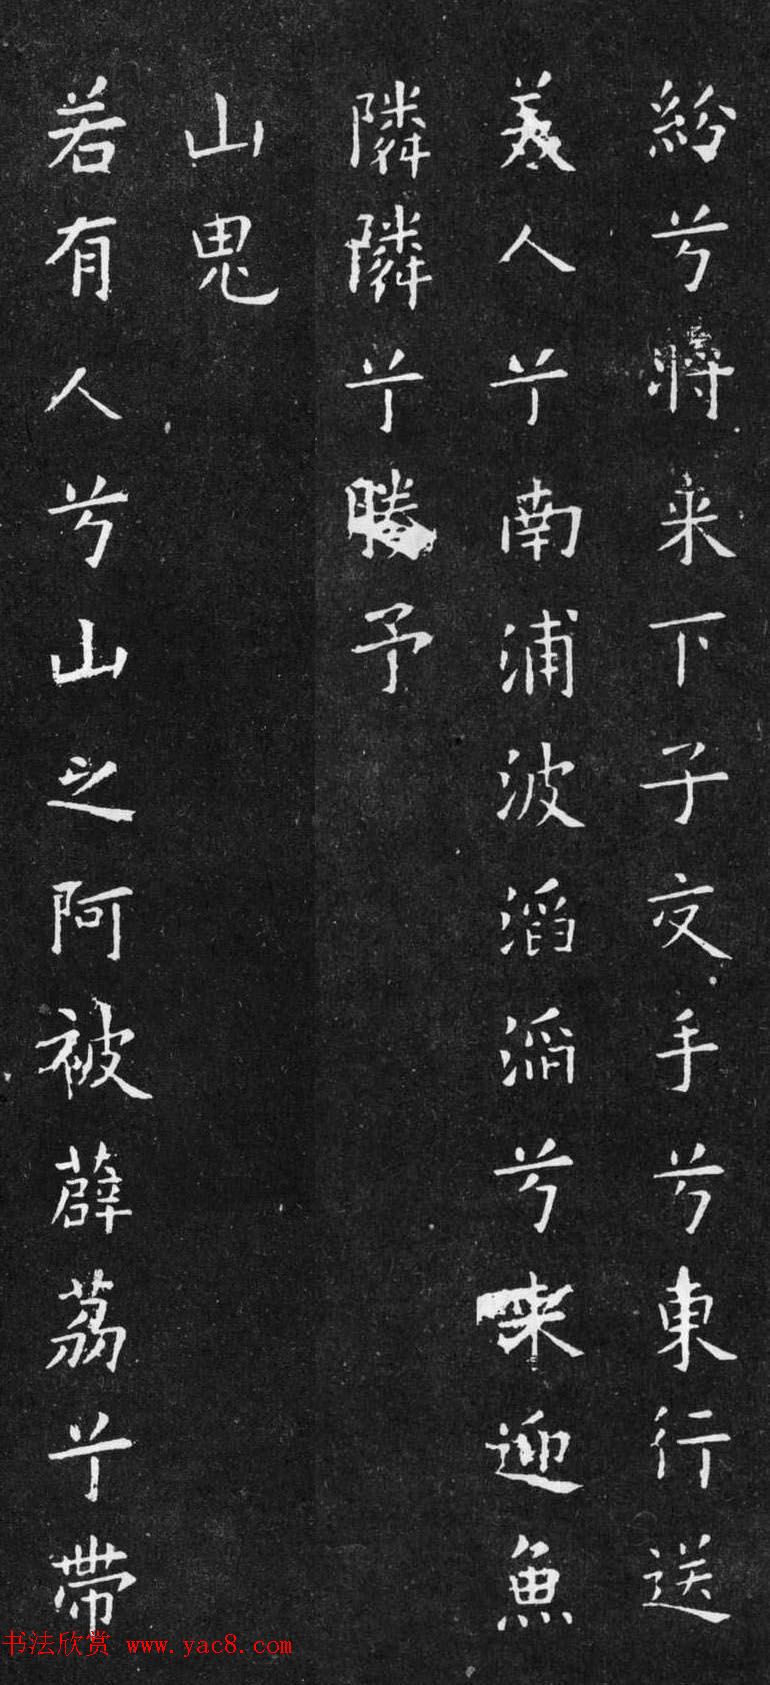 紛兮將来下子交手兮東行送
羙人兮南浦波滔滔兮来迎魚
隣隣兮媵予
山鬼
若有人兮山之阿被薜荔兮帶
书法欣赏 www.yac8.com